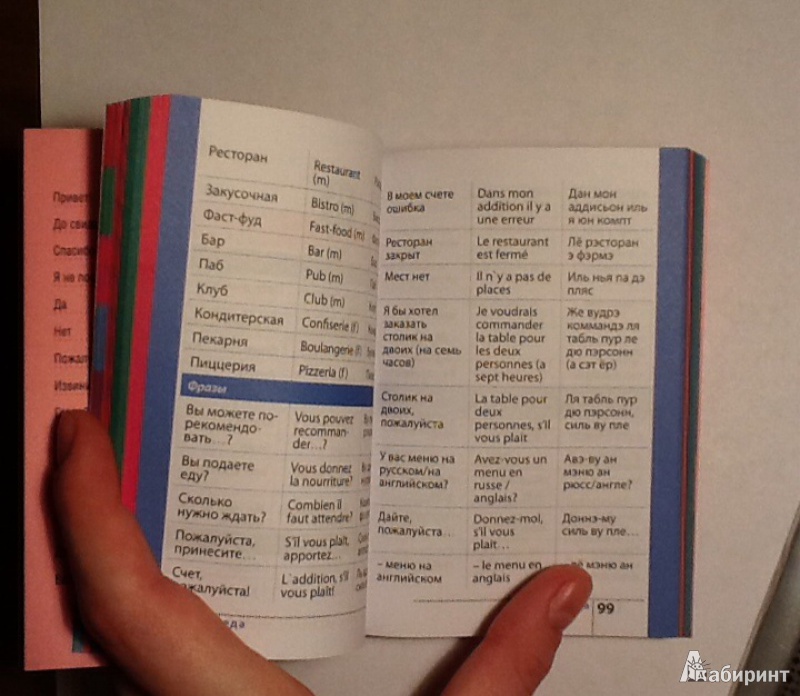 Привет
До сви
Спасиб
Я не по
Да
Нет
Пожал
Извин
Ресторан
Restaurant
(m)
Закусочная
Bistro (m)
Фаст-фуд
Fast-food (m)
Бар
Bar (m)
Паб
Pub (m)
Клуб
Club (m)
Кондитерская
Confiserie (f)
Пекарня
Boulangerie (f)
Пиццерия
Pizzeria (f)
Фразы
Вы можете по-
рекомендо-
вать...?
Vous pouvez
recomman-
der...?
Вы подаете
еду?
Vous donnez
la nourriture?
Сколько
нужно ждать?
Combien il
faut attendre?
Пожалуйста,
принесите...
S'il vous plaît,
apportez...
Счет,
жалуйста!
L`addition, s'il
vous plaît!
еда
В моем счете
ошибка
Dans mon
addition il y a
une erreur
Дан мон
аддисьон иль
я юн компт
Ресторан
закрыт
Le restaurant
est fermé
Лё рэсторан
э фэрмэ
Мест нет
Il n`y a pas de
places
Иль нья па дэ
пляс
Я бы хотел
заказать
столик на
двоих (на семь
часов)
Je voudrais
commander
la table pour
les deux
personnes (a
sept heures)
Же вудрэ
коммандэ ля
табль пур ле
дю пэрсонн
(а сэт ёр)
Столик на
двоих,
пожалуйста
La table pour
deux
personnes, s'il
vous plait
Ля табль пур
дю пэрсонн,
силь ву пле
У вас меню на
русском/на
английском?
Avez-vous un
menu en
russe /
anglais?
Авэ-ву ан
мэню ан
рюсс/англе?
Дайте,
пожалуйста...
Donnez-moi,
s'il vous
plait...
Доннэ-му
силь ву пле...
– меню на
английском
– le menu en
anglais
мэню ан
99
Лабиринт